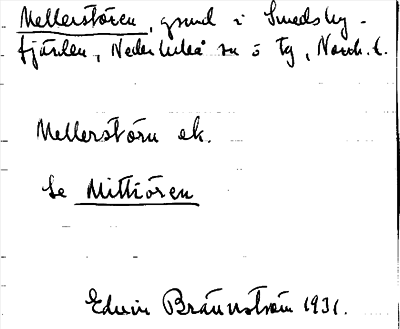 Mellerstören, grund i Smedsby-
fjärden, Nederluleå sn ö tg, Norrb. l.
Mellerstörn ek.
Se Mittiören
Edvin Brännström 1931.